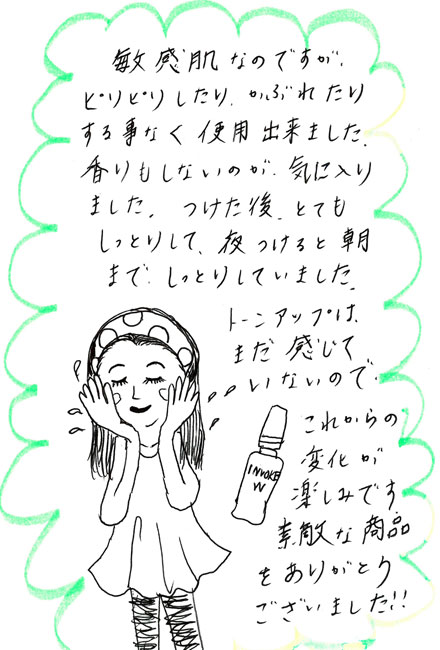 敏感肌なのですが、
ピリピリしたり、かぶれたり
する事なく使用出来ました。
香りもしないのが、気に入り
ました。つけた後、とても
しっとりして、夜つけると朝
まで、しっとりしていました。
トーンアップは、
まだ感じて
いないので、
これからの
変化が
楽しみです
素敵な商品
をありがとう
ございました!!
INVOKE
VV